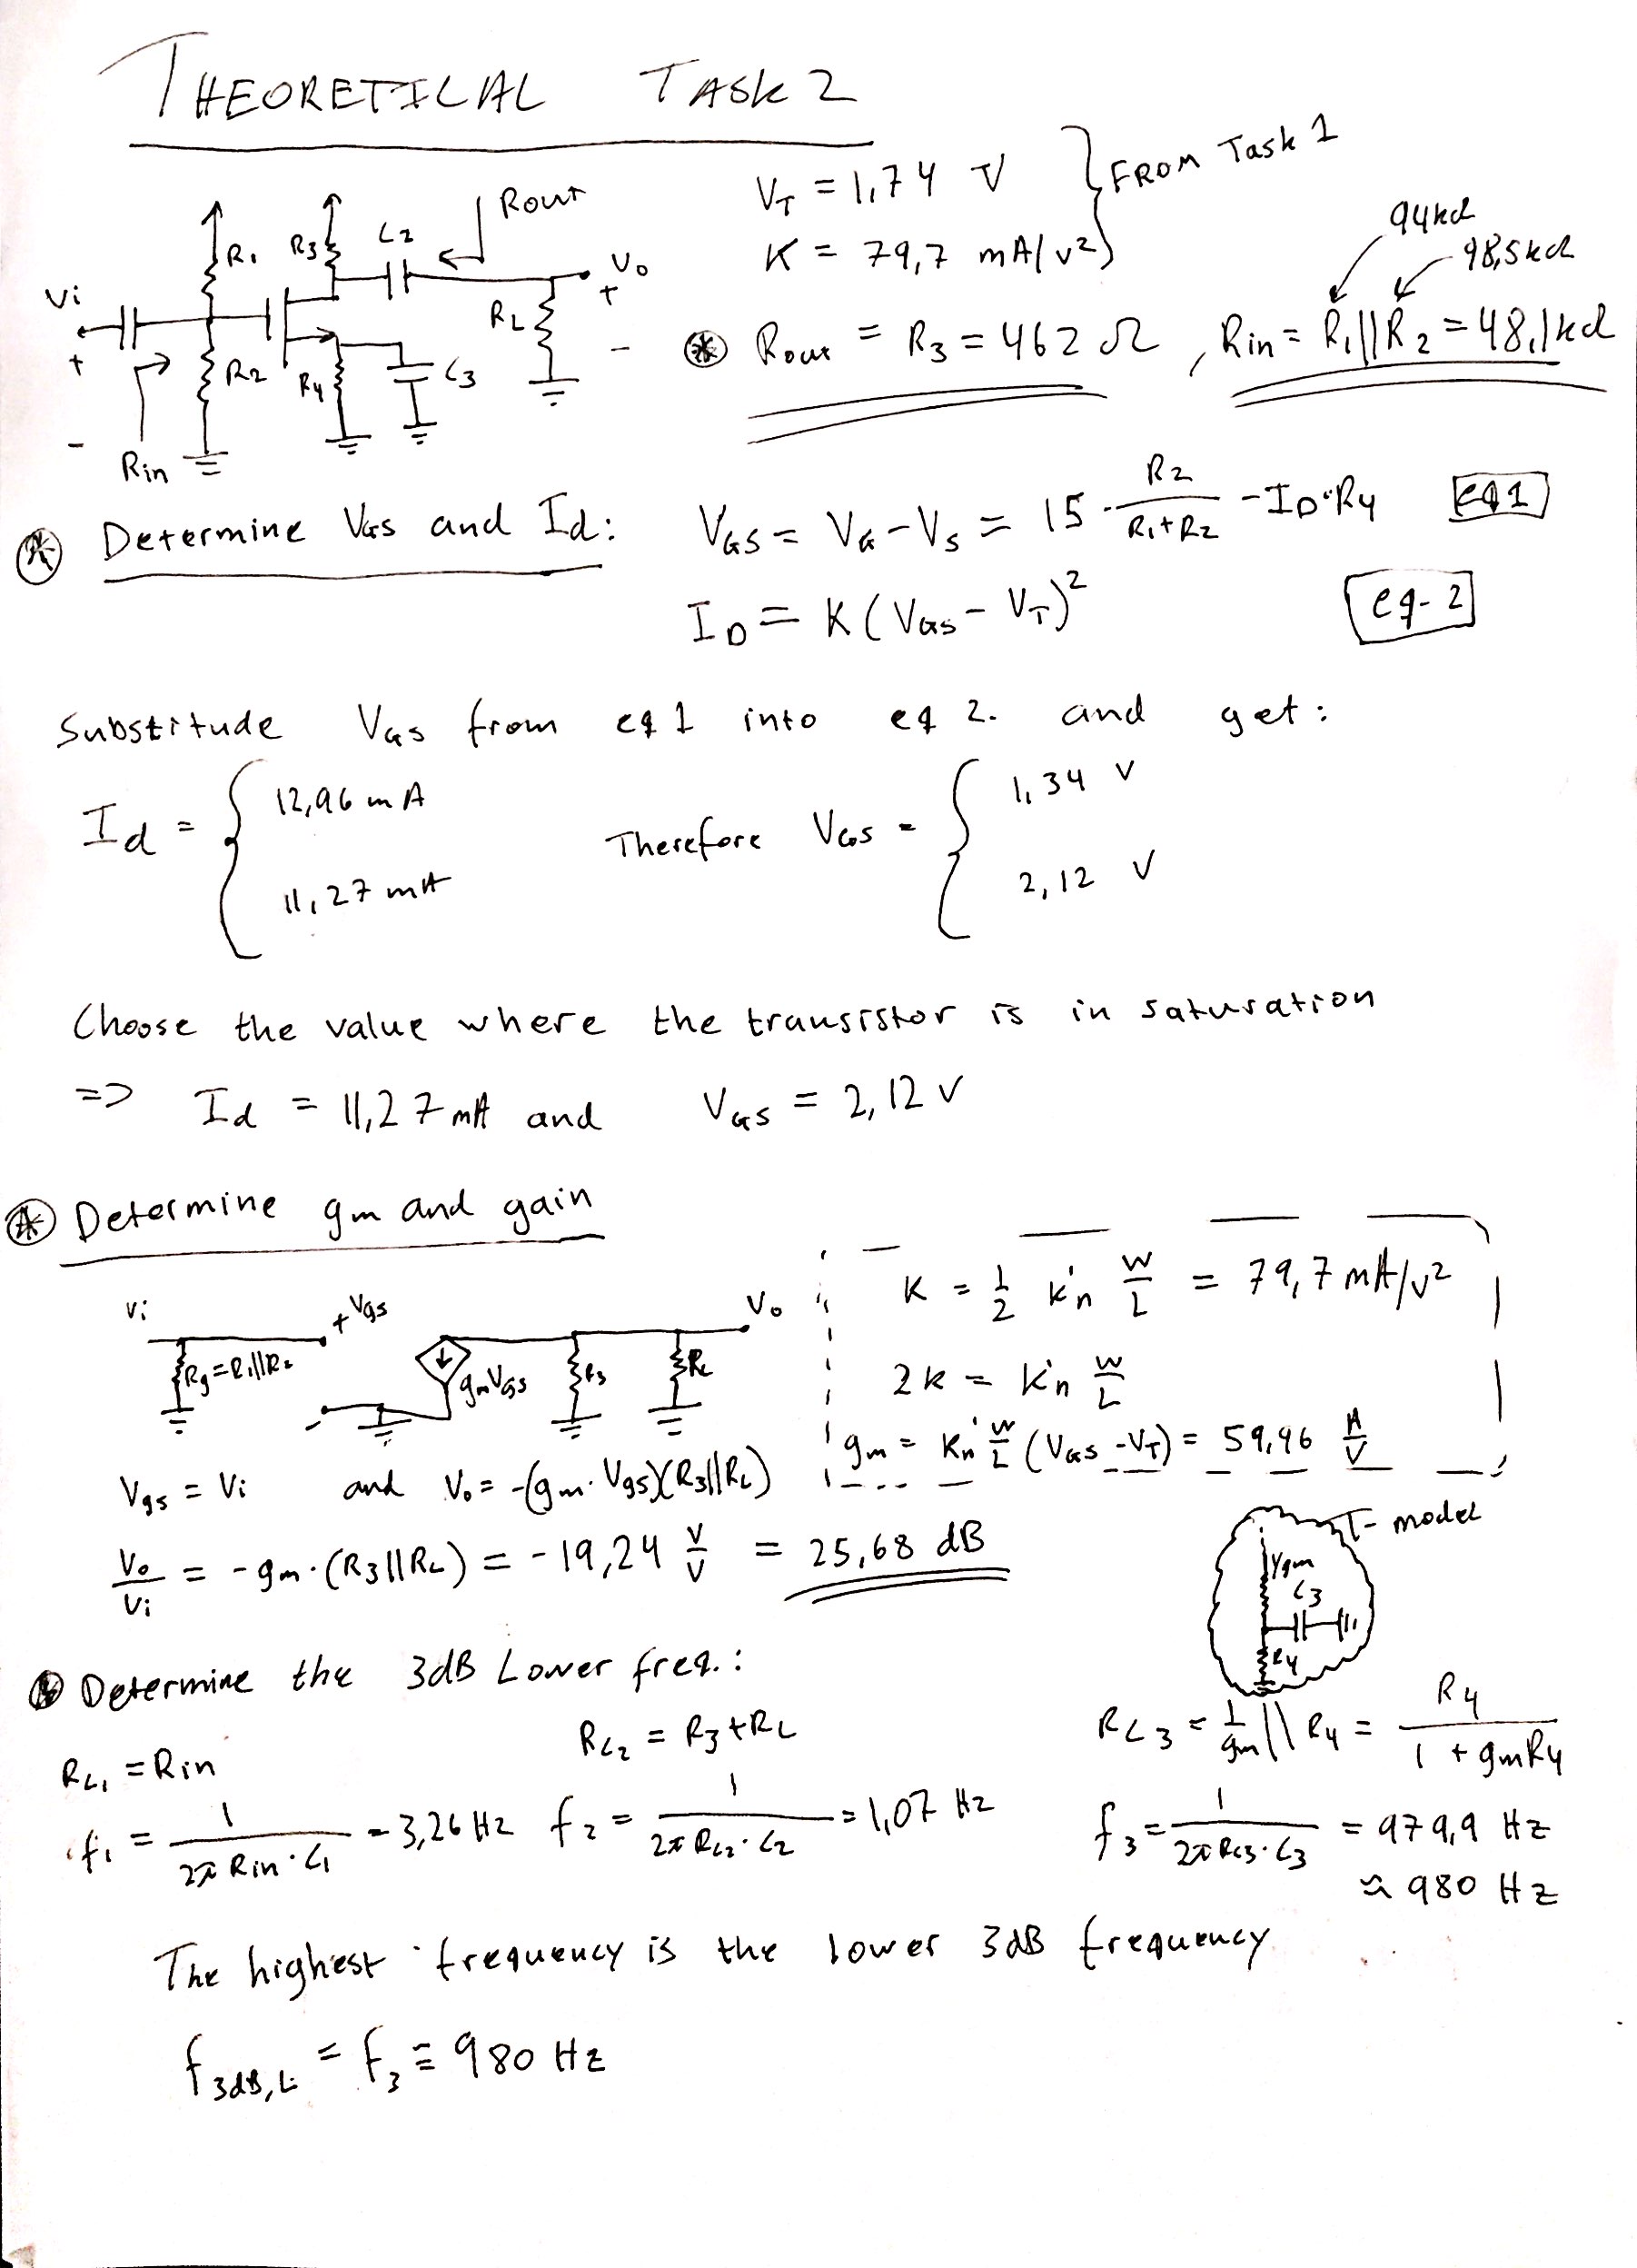 THEORETICAL TASK 2
V_T = 1,74 V } FROM Task 1
K = 79,7 mA/V²
R1 R3 C2 Rout
Vi Vo
+ +
RL
R2 R4 C3
- -
Rin
94kΩ
98,5kΩ
Rout = R3 = 462 Ω , Rin = R1||R2 = 48,1kΩ
Determine VGS and Id: VGS = VG - VS = 15 · R2/(R1+R2) - ID·R4 eq 1
ID = K(VGS - VT)² eq. 2
Substitude VGS from eq 1 into eq 2. and get:
Id = { 12,96 mA Therefore VGS = { 1,34 V
11,27 mA 2,12 V
Choose the value where the transistor is in saturation
=> Id = 11,27 mA and VGS = 2,12 V
Determine gm and gain
K = 1/2 k'n W/L = 79,7 mA/V²
2k = k'n W/L
gm = k'n W/L (VGS - VT) = 59,96 A/V
Vi + Vgs Vo
Rg = R1||R2 gmVGS R3 RL
-
Vgs = Vi and Vo = -(gm·Vgs)(R3||RL)
Vo/Vi = -gm·(R3||RL) = -19,24 V/V = 25,68 dB
T-model
1/gm
C3
R4
Determine the 3dB Lower freq.:
RC1 = Rin RC2 = R3 + RL RC3 = 1/gm || R4 = R4/(1 + gmR4)
f1 = 1/(2π Rin·C1) = 3,26 Hz f2 = 1/(2π RC2·C2) = 1,07 Hz f3 = 1/(2π RC3·C3) = 979,9 Hz
≈ 980 Hz
The highest frequency is the lower 3dB frequency
f3dB,L = f3 ≅ 980 Hz